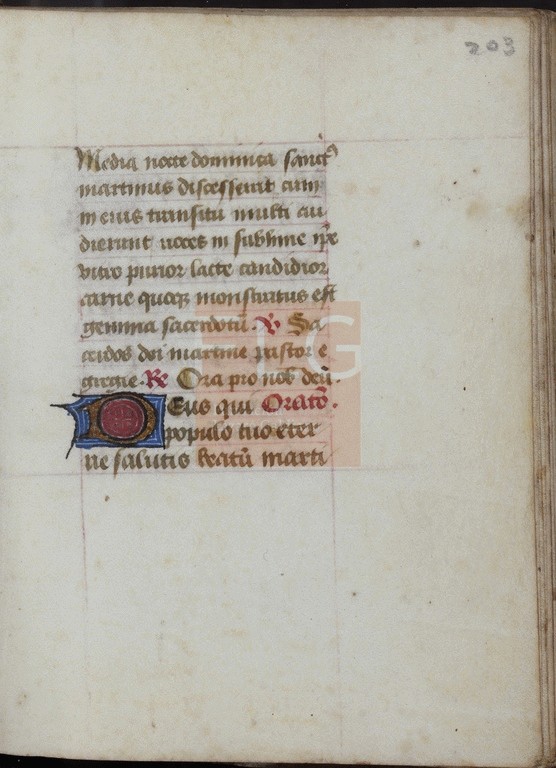 203
Media nocte dominica sanct᾿
martinus discesserit cum
in eius transitu multi au
dierunt uoces in sublime ip̄e
vitro purior lacte candidior
carne queqꝫ monstratus est
gemma sacerdotū. ℣ Sa
cerdos dei martine pastor e
gregie. ℟ Ora pro nob deū.
Deus qui Oratō.
populo tuo eter
ne salutis beatū marti